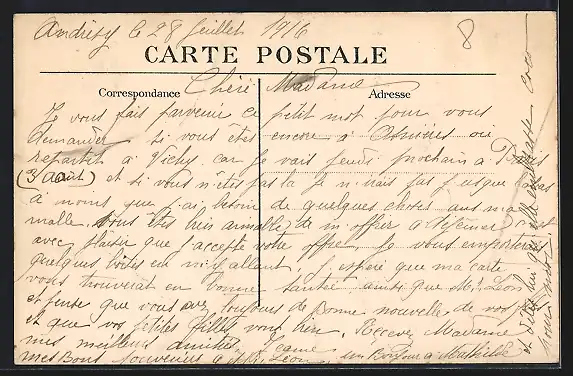 Andrésy le 28 Juillet 1916
8
CARTE POSTALE
Correspondance Adresse
Chère Madame
Je vous fais parvenir ce petit mot pour vous
demander si vous etes encore a Asnières ou
repartit a Vichy car Je vais Jeudi prochain à Paris
(3 Aout) et si vous n'êtes pas la Je n'irais pas Jusque la bas
a moins que J'ai besoin de quelques choses
malle. vous êtes bien aimable de m'offrir a déjeuner c'est
avec plaisir que J'accepte votre offre Je vous emporterai
quelques boites en m'y allant. J'espère que ma carte
vous trouverait en bonne santée ainsi que Mr Léon
et pense que vous avez toujours de Bonne nouvelle de vos
et que vos petites filles vont bien. Recevez Madame
mes meilleurs amitiés
mes Bons souvenirs a Mr Léon, un Bonjour a Mathilde